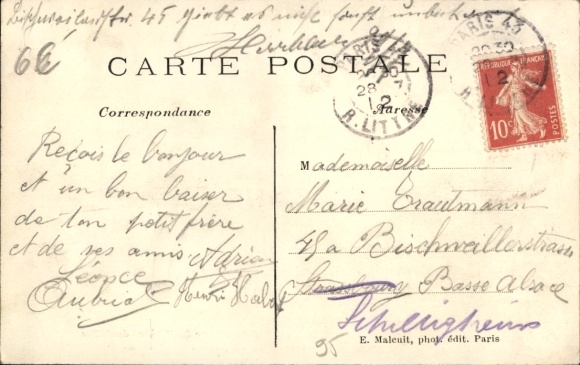 Bischweilerstr. 45 giebt es nicht
6E
CARTE POSTALE
PARIS 43
R. LITTRÉ
28
12
RÉPUBLIQUE FRANÇAISE
10c
POSTES
Correspondance
Adresse
Reçois le bonjour
et un bon baiser
de ton petit frère
et de ses amis Adrien
Henri
Mademoiselle
Marie Trautmann
45a Bischweillerstrasse
Strassburg Basse Alsace
Schiltigheim
95
E. Malcuit, phot. édit. Paris